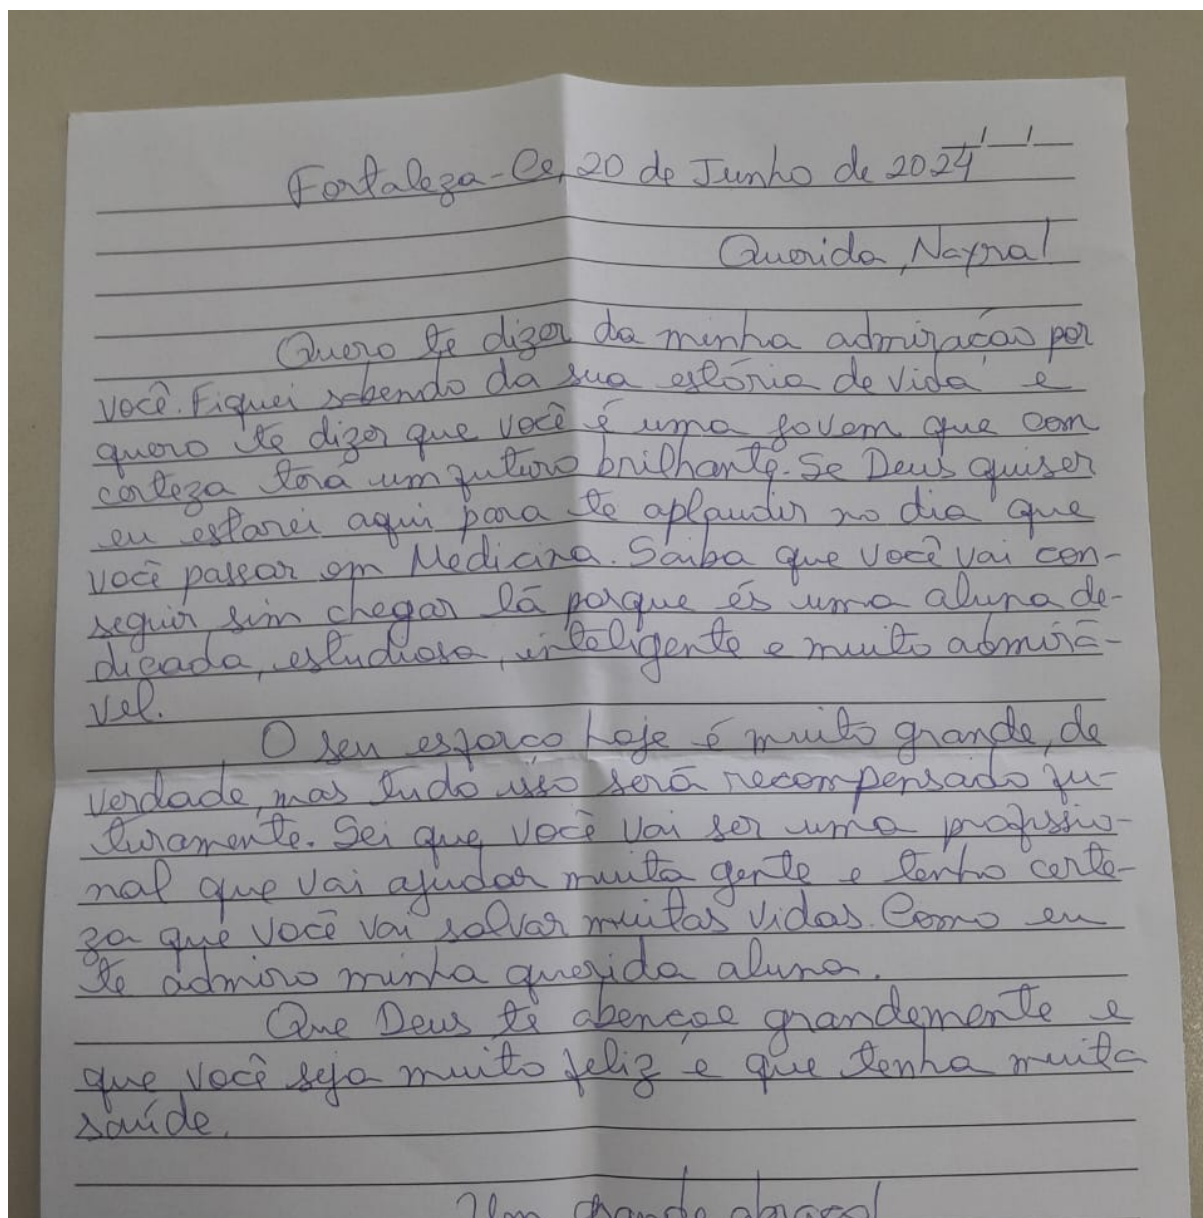 Fortaleza-Ce, 20 de Junho de 2024
Querida, Nayra!
Quero te dizer da minha admiração por
você. Fiquei sabendo da sua estória de vida e
quero te dizer que você é uma jovem que com
certeza terá um futuro brilhante. Se Deus quiser
eu estarei aqui para te aplaudir no dia que
você passar em Medicina. Saiba que você vai con-
seguir sim chegar lá porque és uma aluna de-
dicada, estudiosa, inteligente e muito admirá-
vel.
O seu esforço hoje é muito grande, de
verdade, mas tudo isso será recompensado fu-
turamente. Sei que você vai ser uma profissio-
nal que vai ajudar muita gente e tenho certe-
za que você vai salvar muitas vidas. Como eu
te admiro minha querida aluna.
Que Deus te abençoe grandemente e
que você seja muito feliz e que tenha muita
saúde.
Um grande abraço!